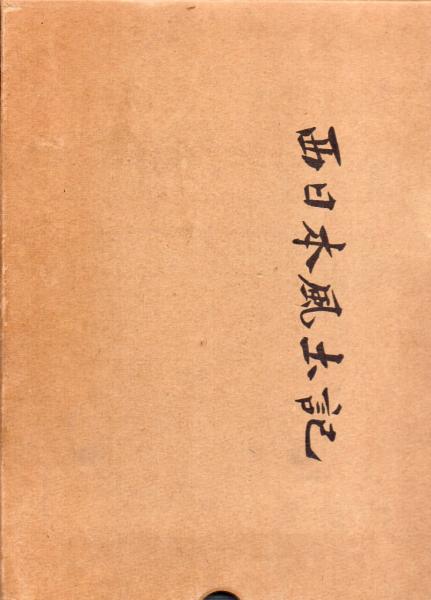 西日本風土記